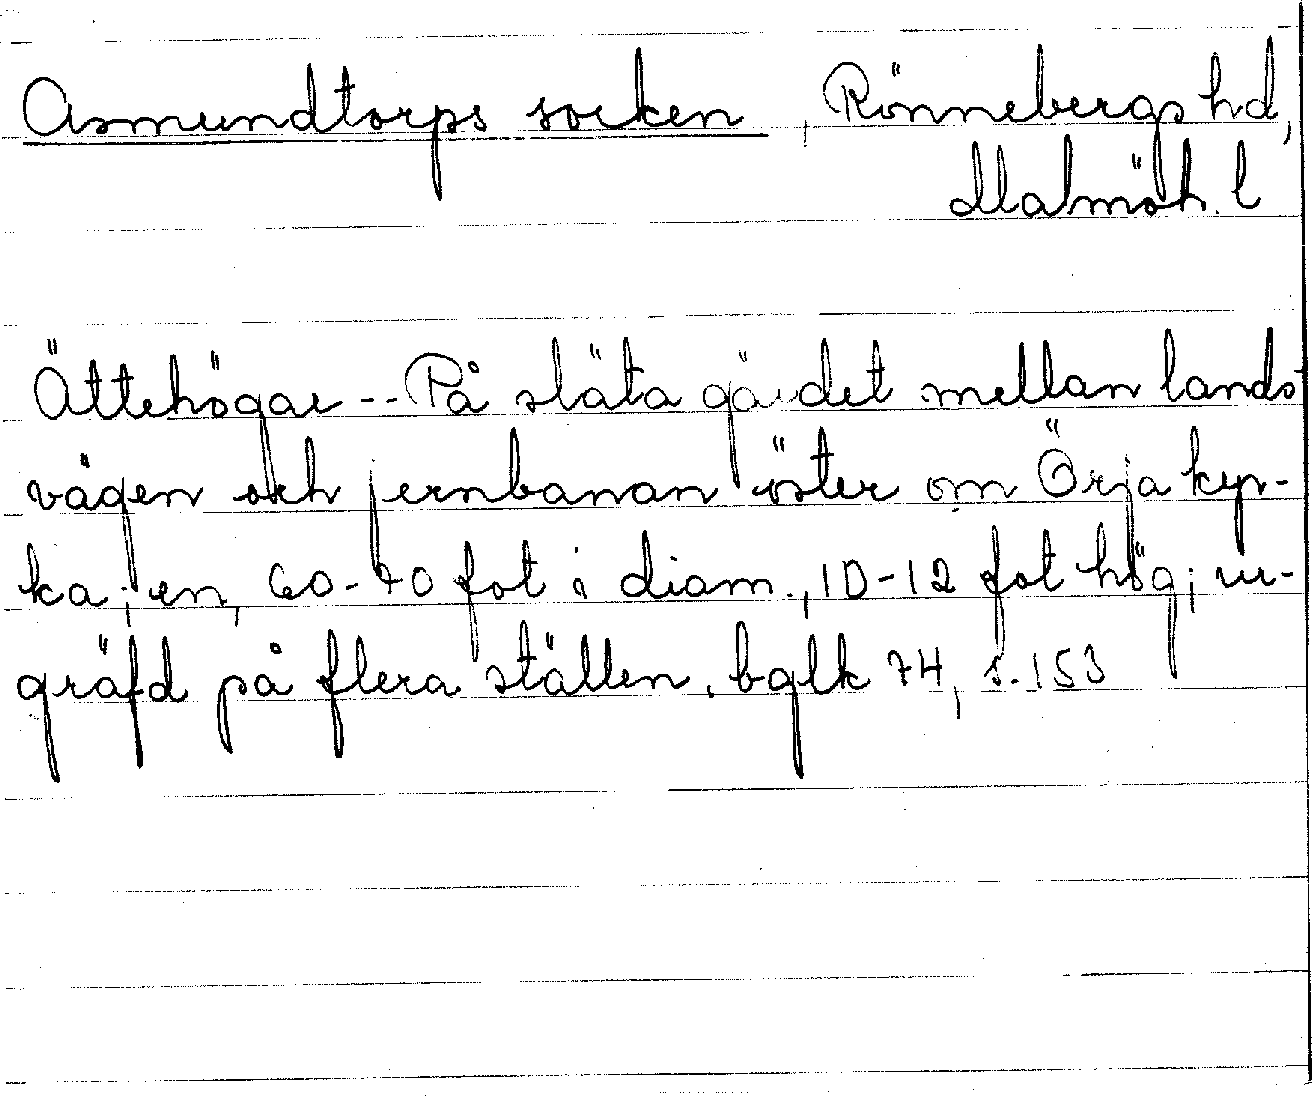 Asmundtorps socken, Rönnebergs hd,
Malmöh. l
Ättehögar -- På släta gärdet mellan lands
vägen och jernbanan öster om Örja kyr-
ka; en, 60-70 fot i diam., 10-12 fot hög; ur-
gräfd på flera ställen. bglk 74, s. 153